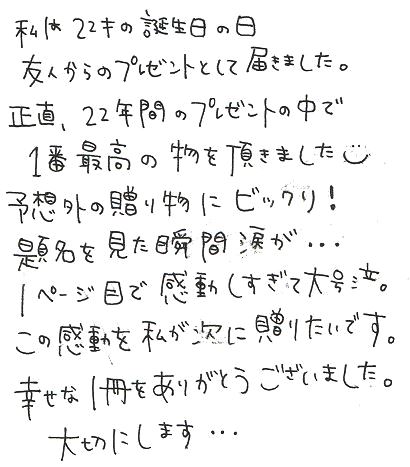 私は22才の誕生日の日
友人からのプレゼントとして届きました。
正直、22年間のプレゼントの中で
1番最高の物を頂きました
予想外の贈り物にビックリ！
題名を見た瞬間涙が…
1ページ目で感動しすぎて大号泣。
この感動を私が次に贈りたいです。
幸せな1冊をありがとうございました。
大切にします…